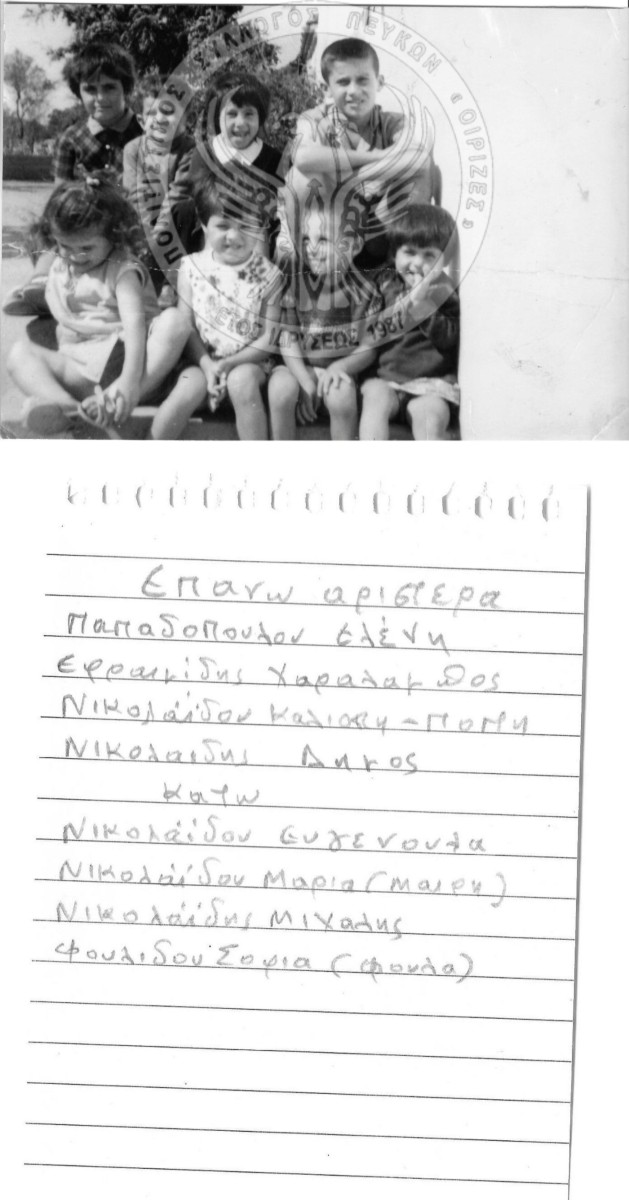 ΠΕΥΚΩΝ «ΟΙ ΡΙΖΕΣ»
1987
Επανω αριστερα
Παπαδοπουλου Ελένη
Εφραιμίδης Χαραλαμπος
Νικολάϊδου Καλιοπη - Ποπη
Νικολαιδης Δημος
Κατω
Νικολάϊδου Ευγενουλα
Νικολάϊδου Μαρια (Μαιρη)
Νικολάϊδης Μιχαλης
Φουλιδου Σοφια (φουλα)